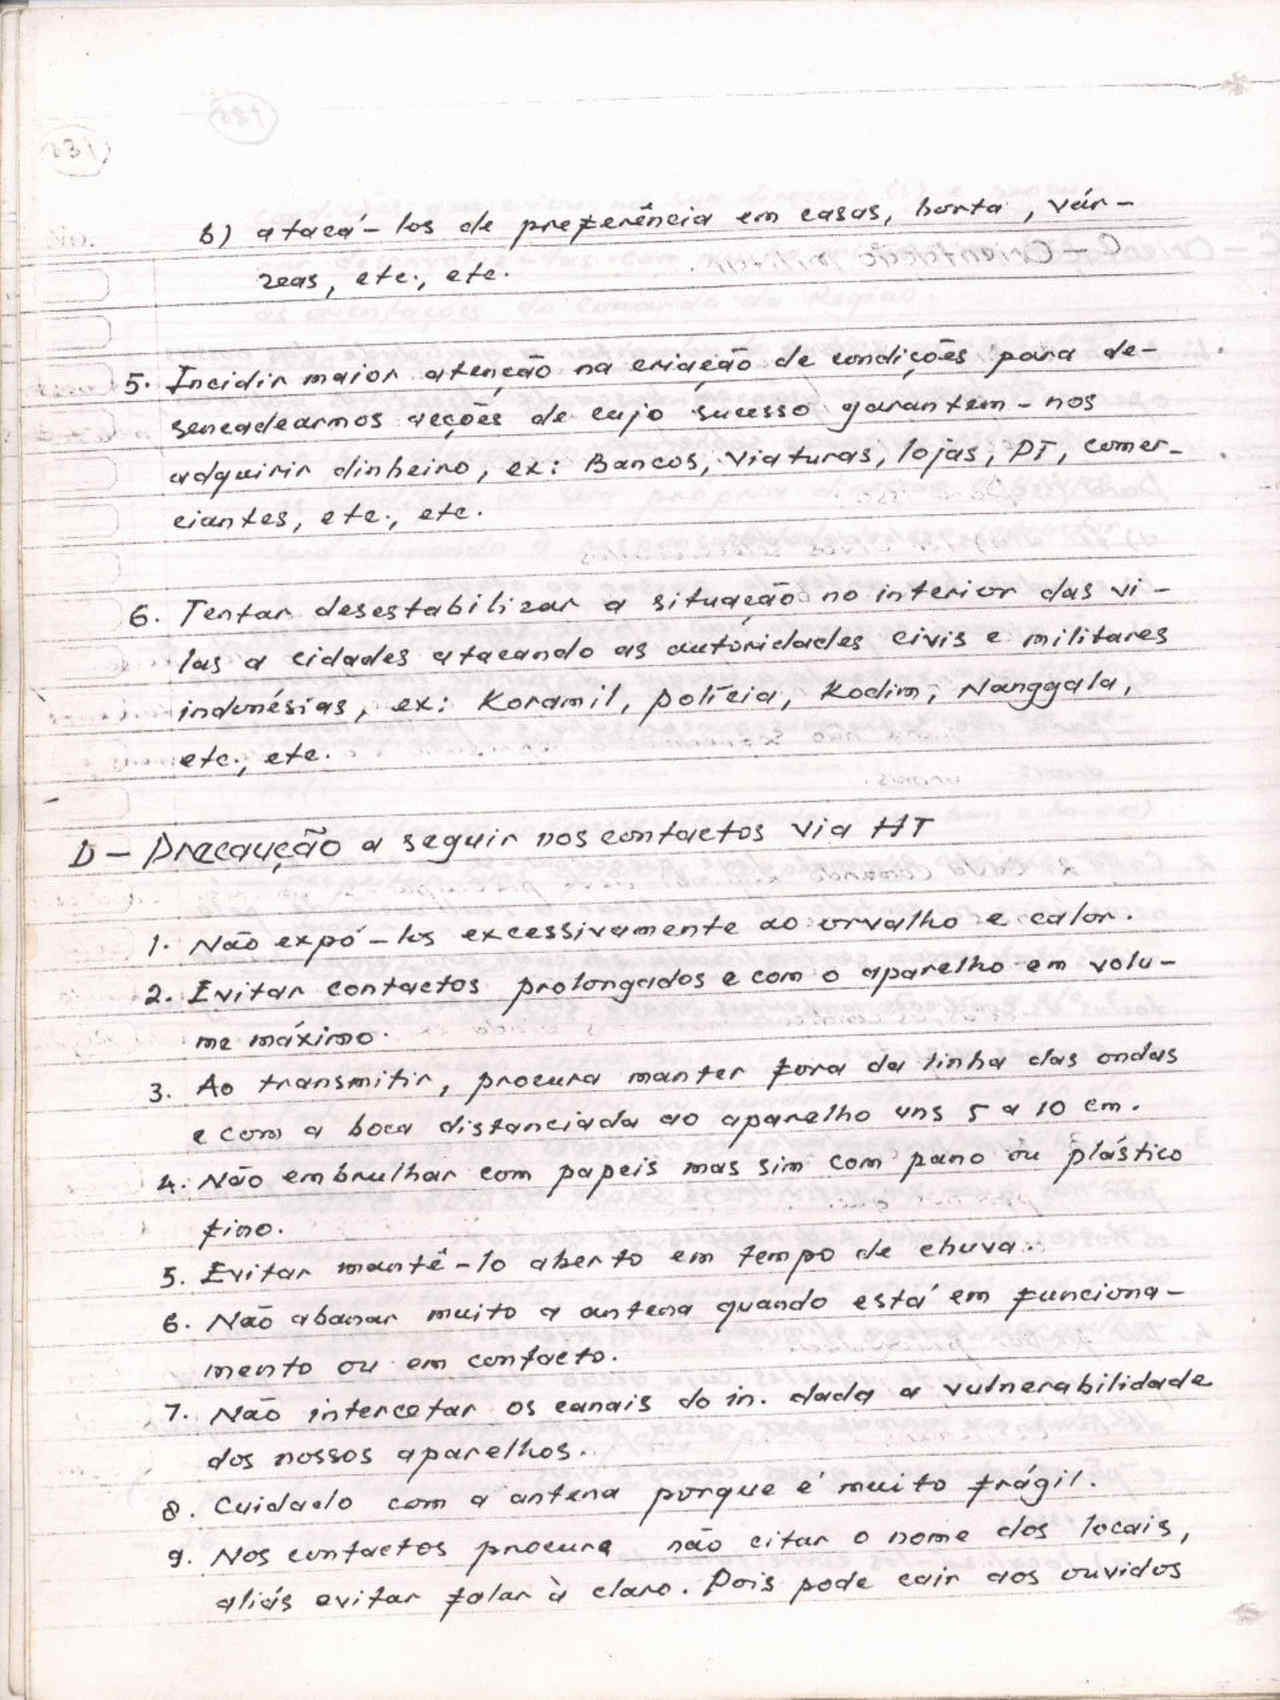 131
b) atacá-los de preferência em casas, horta, vár-
zeas, etc., etc.
5. Incidir maior atenção na criação de condições para de-
sencadearmos acções de cujo sucesso garantem-nos
adquirir dinheiro, ex: Bancos, viaturas, lojas, PT, comer-
ciantes, etc., etc.
6. Tentar desestabilizar a situação no interior das vi-
las a cidades atacando as autoridades civis e militares
indonésias, ex: Koramil, polícia, Kodim, Nanggala,
etc., etc.
D - Precaução a seguir nos contactos via HT
1. Não expô-los excessivamente ao orvalho e calor.
2. Evitar contactos prolongados e com o aparelho em volu-
me máximo.
3. Ao transmitir, procura manter fora da linha das ondas
e com a boca distanciada ao aparelho uns 5 a 10 cm.
4. Não embrulhar com papeis mas sim com pano ou plástico
fino.
5. Evitar mantê-lo aberto em tempo de chuva.
6. Não abanar muito a antena quando está em funciona-
mento ou em contacto.
7. Não intercetar os canais do in. dada a vulnerabilidade
dos nossos aparelhos.
8. Cuidado com a antena porque é muito frágil.
9. Nos contactos procura não citar o nome dos locais,
aliás evitar falar à claro. Pois pode cair aos ouvidos